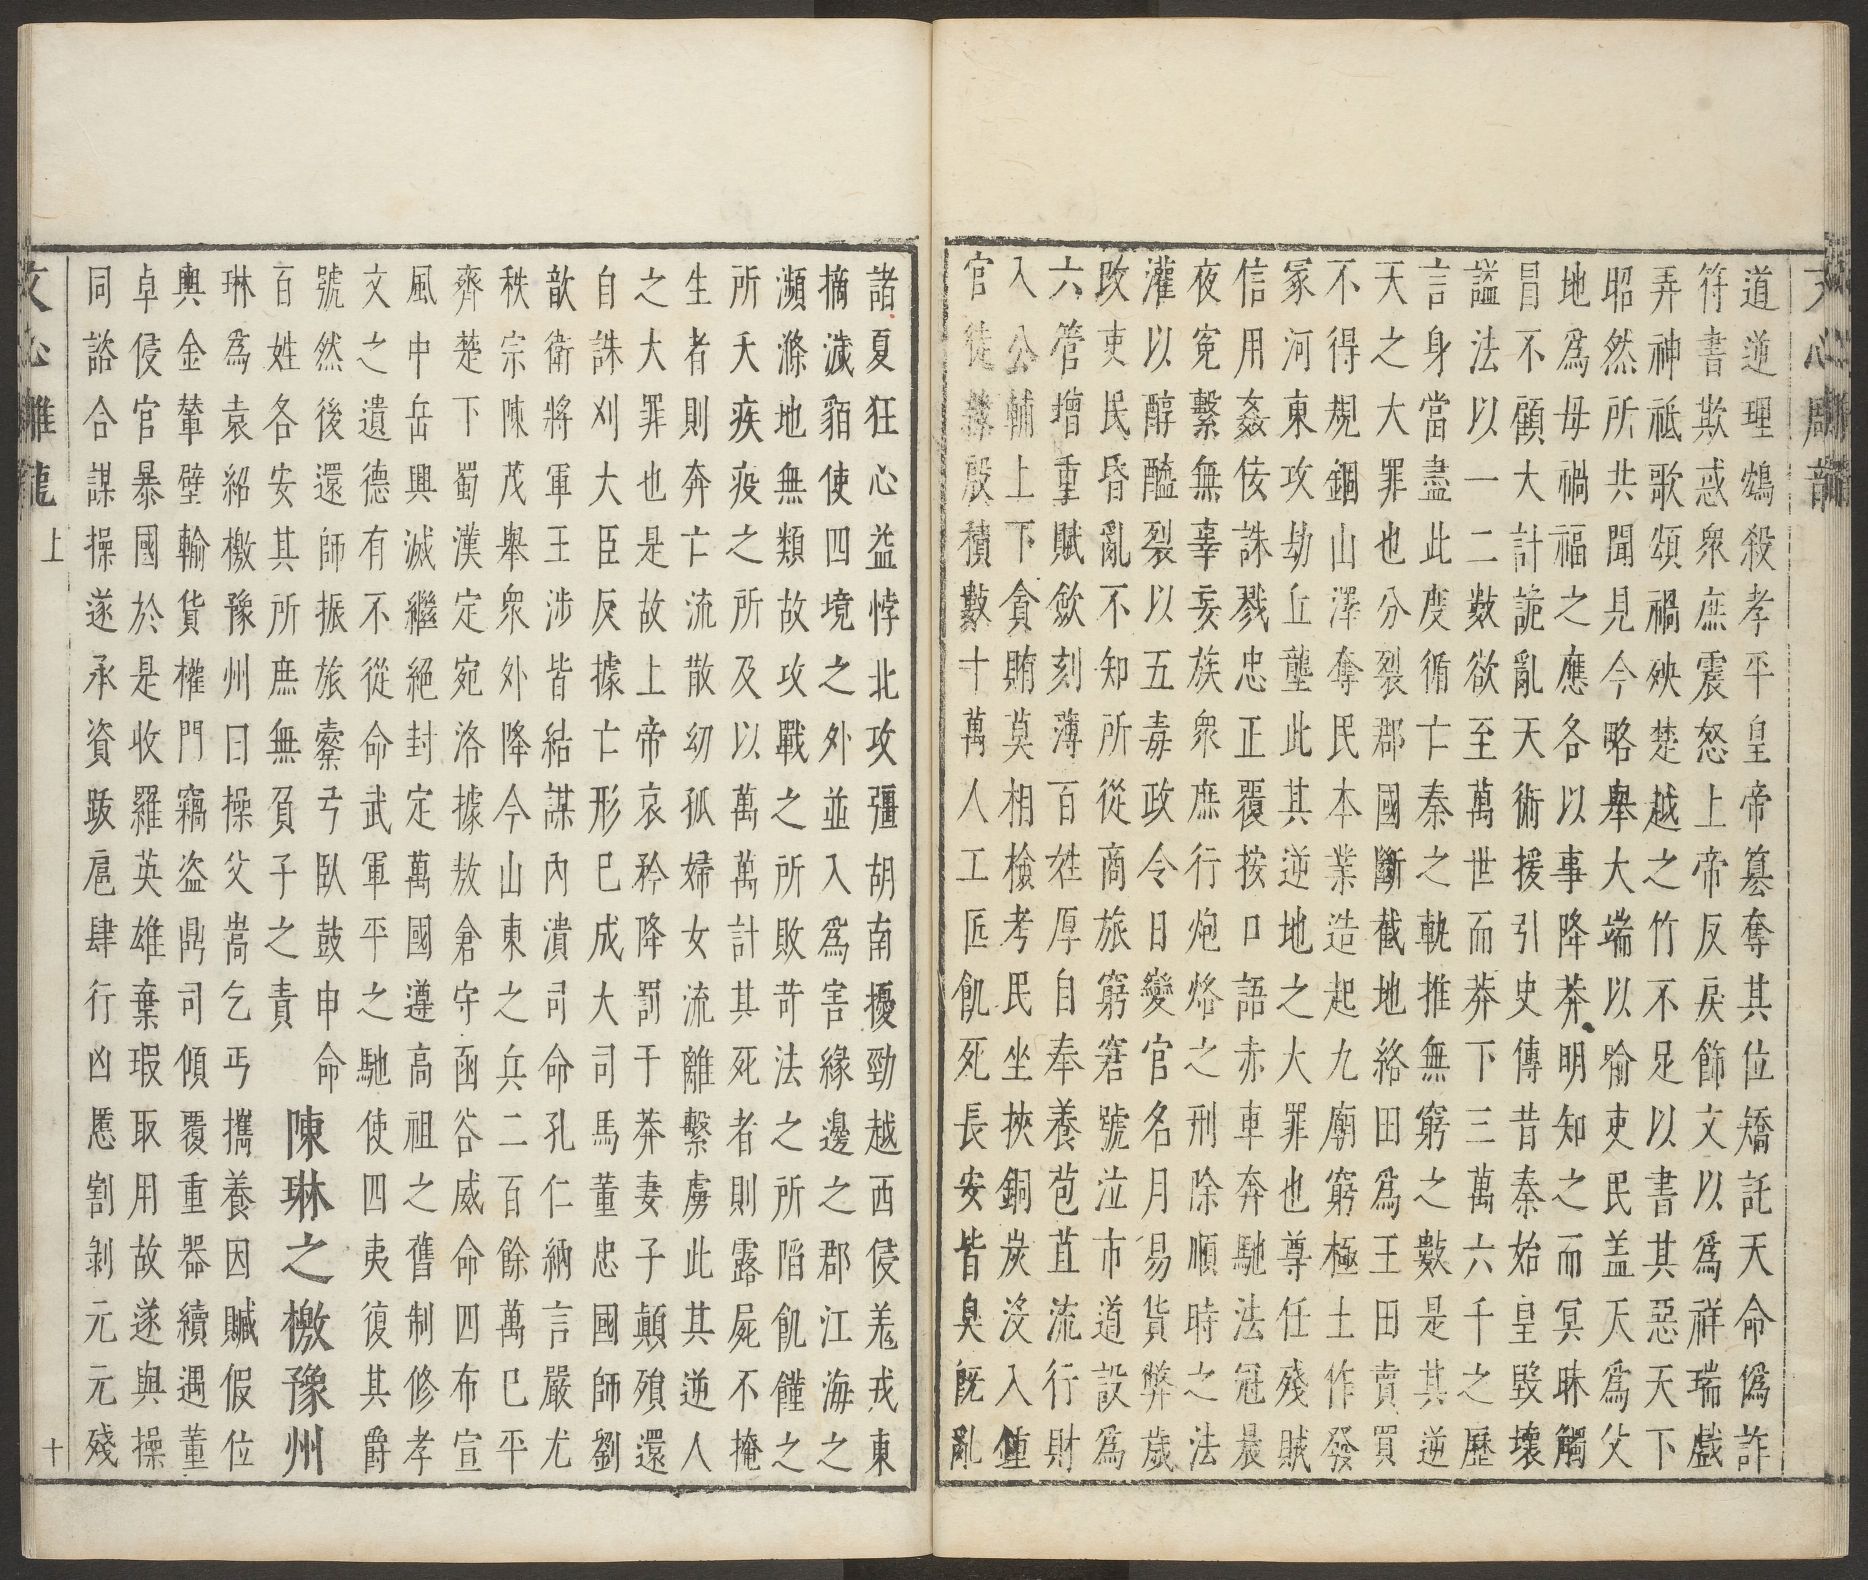 道逆理鴆殺孝平皇帝簒奪其位矯託天命偽詐
符書欺惑衆庶震怒上帝反戾飾文以爲祥瑞戲
弄神祇歌頌禍殃楚越之竹不足以書其惡天下
昭然所共聞見今略舉大端以喻吏民盖天爲父
地爲母禍福之應各以事降莽明知之而冥昧觸
冒不顧大計詭亂天術援引史傳昔秦始皇毀壞
謚法以一二數欲至萬世而莽下三萬六千之歷
言身當盡此度循亡秦之軌推無窮之數是其逆
天之大罪也分裂郡國斷截地絡田爲王田賣買
不得規錮山澤奪民本業造起九廟窮極土作發
冢河東攻劫丘壟此其逆地之大罪也尊任殘賊
信用姦佞誅戮忠正覆按口語赤車奔馳法冠晨
夜寃繫無辜妄族衆庶行炮烙之刑除順時之法
灌以醇醯裂以五毒政令日變官名月易貨弊歲
改吏民昏亂不知所從商旅窮窘號泣市道設爲
六管增重賦歛刻薄百姓厚自奉養苞苴流行財
入公輔上下貪賄莫相檢考民坐挾銅炭沒入鍾
官徒隸殷積數十萬人工匠飢死長安皆臭旣亂
諸夏狂心益悖北攻彊胡南擾勁越西侵羌戎東
摘濊貊使四境之外並入爲害緣邊之郡江海之
瀕滌地無類故攻戰之所敗苛法之所陷飢饉之
所夭疾疫之所及以萬萬計其死者則露屍不掩
生者則奔亡流散幼孤婦女流離繫虜此其逆人
之大罪也是故上帝哀矜降罰于莽妻子顛殞還
自誅刈大臣反據亡形已成大司馬董忠國師劉
歆衛將軍王涉皆結謀內潰司命孔仁納言嚴尤
秩宗陳茂舉衆外降今山東之兵二百餘萬已平
齊楚下蜀漢定宛洛據敖倉守函谷威命四布宣
風中岳興滅繼絕封定萬國遵高祖之舊制修孝
文之遺德有不從命武軍平之馳使四夷復其爵
號然後還師振旅櫜弓臥鼓申命
百姓各安其所庶無負子之責　陳琳之檄豫州
琳爲袁紹檄豫州曰操父嵩乞丐攜養因贓假位
輿金輦璧輸貨權門竊盜鼎司傾覆重器續遇董
卓侵官暴國於是收羅英雄棄瑕取用故遂與操
同諮合謀操遂承資跋扈肆行凶慝割剝元元殘
文心雕龍 上 十